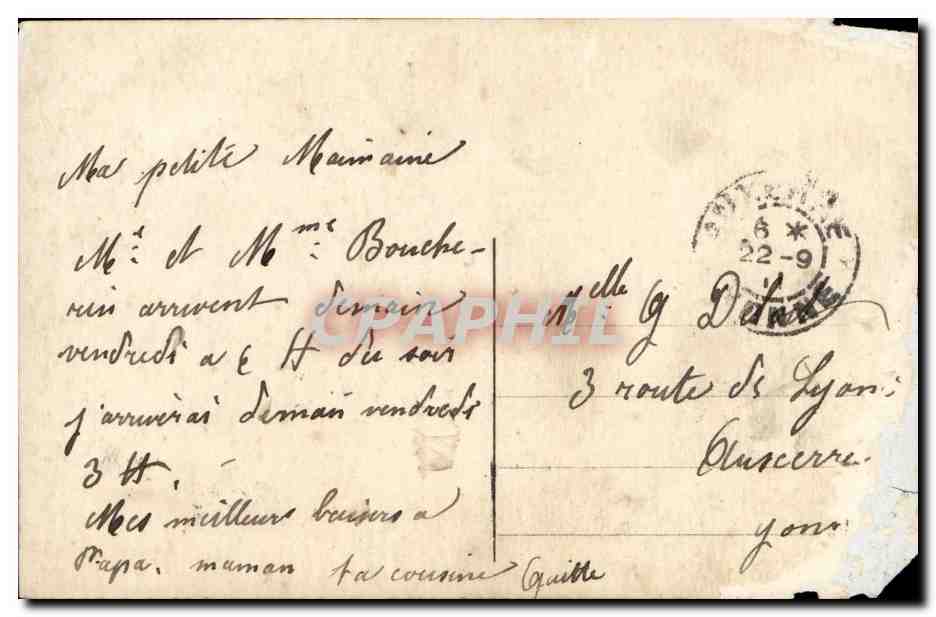 Ma petite Mainaine
Mr et Mme Bouche-
rin arrivent demain
vendredi a 6 H du soir
j'arriverai demain vendredi
3 H.
Mes meilleurs baisers a
Papa. maman ta cousine
6 *
22-9
YONNE
Melle G
3 route de Lyon
Auxerre
Yonn
CPAPHIL